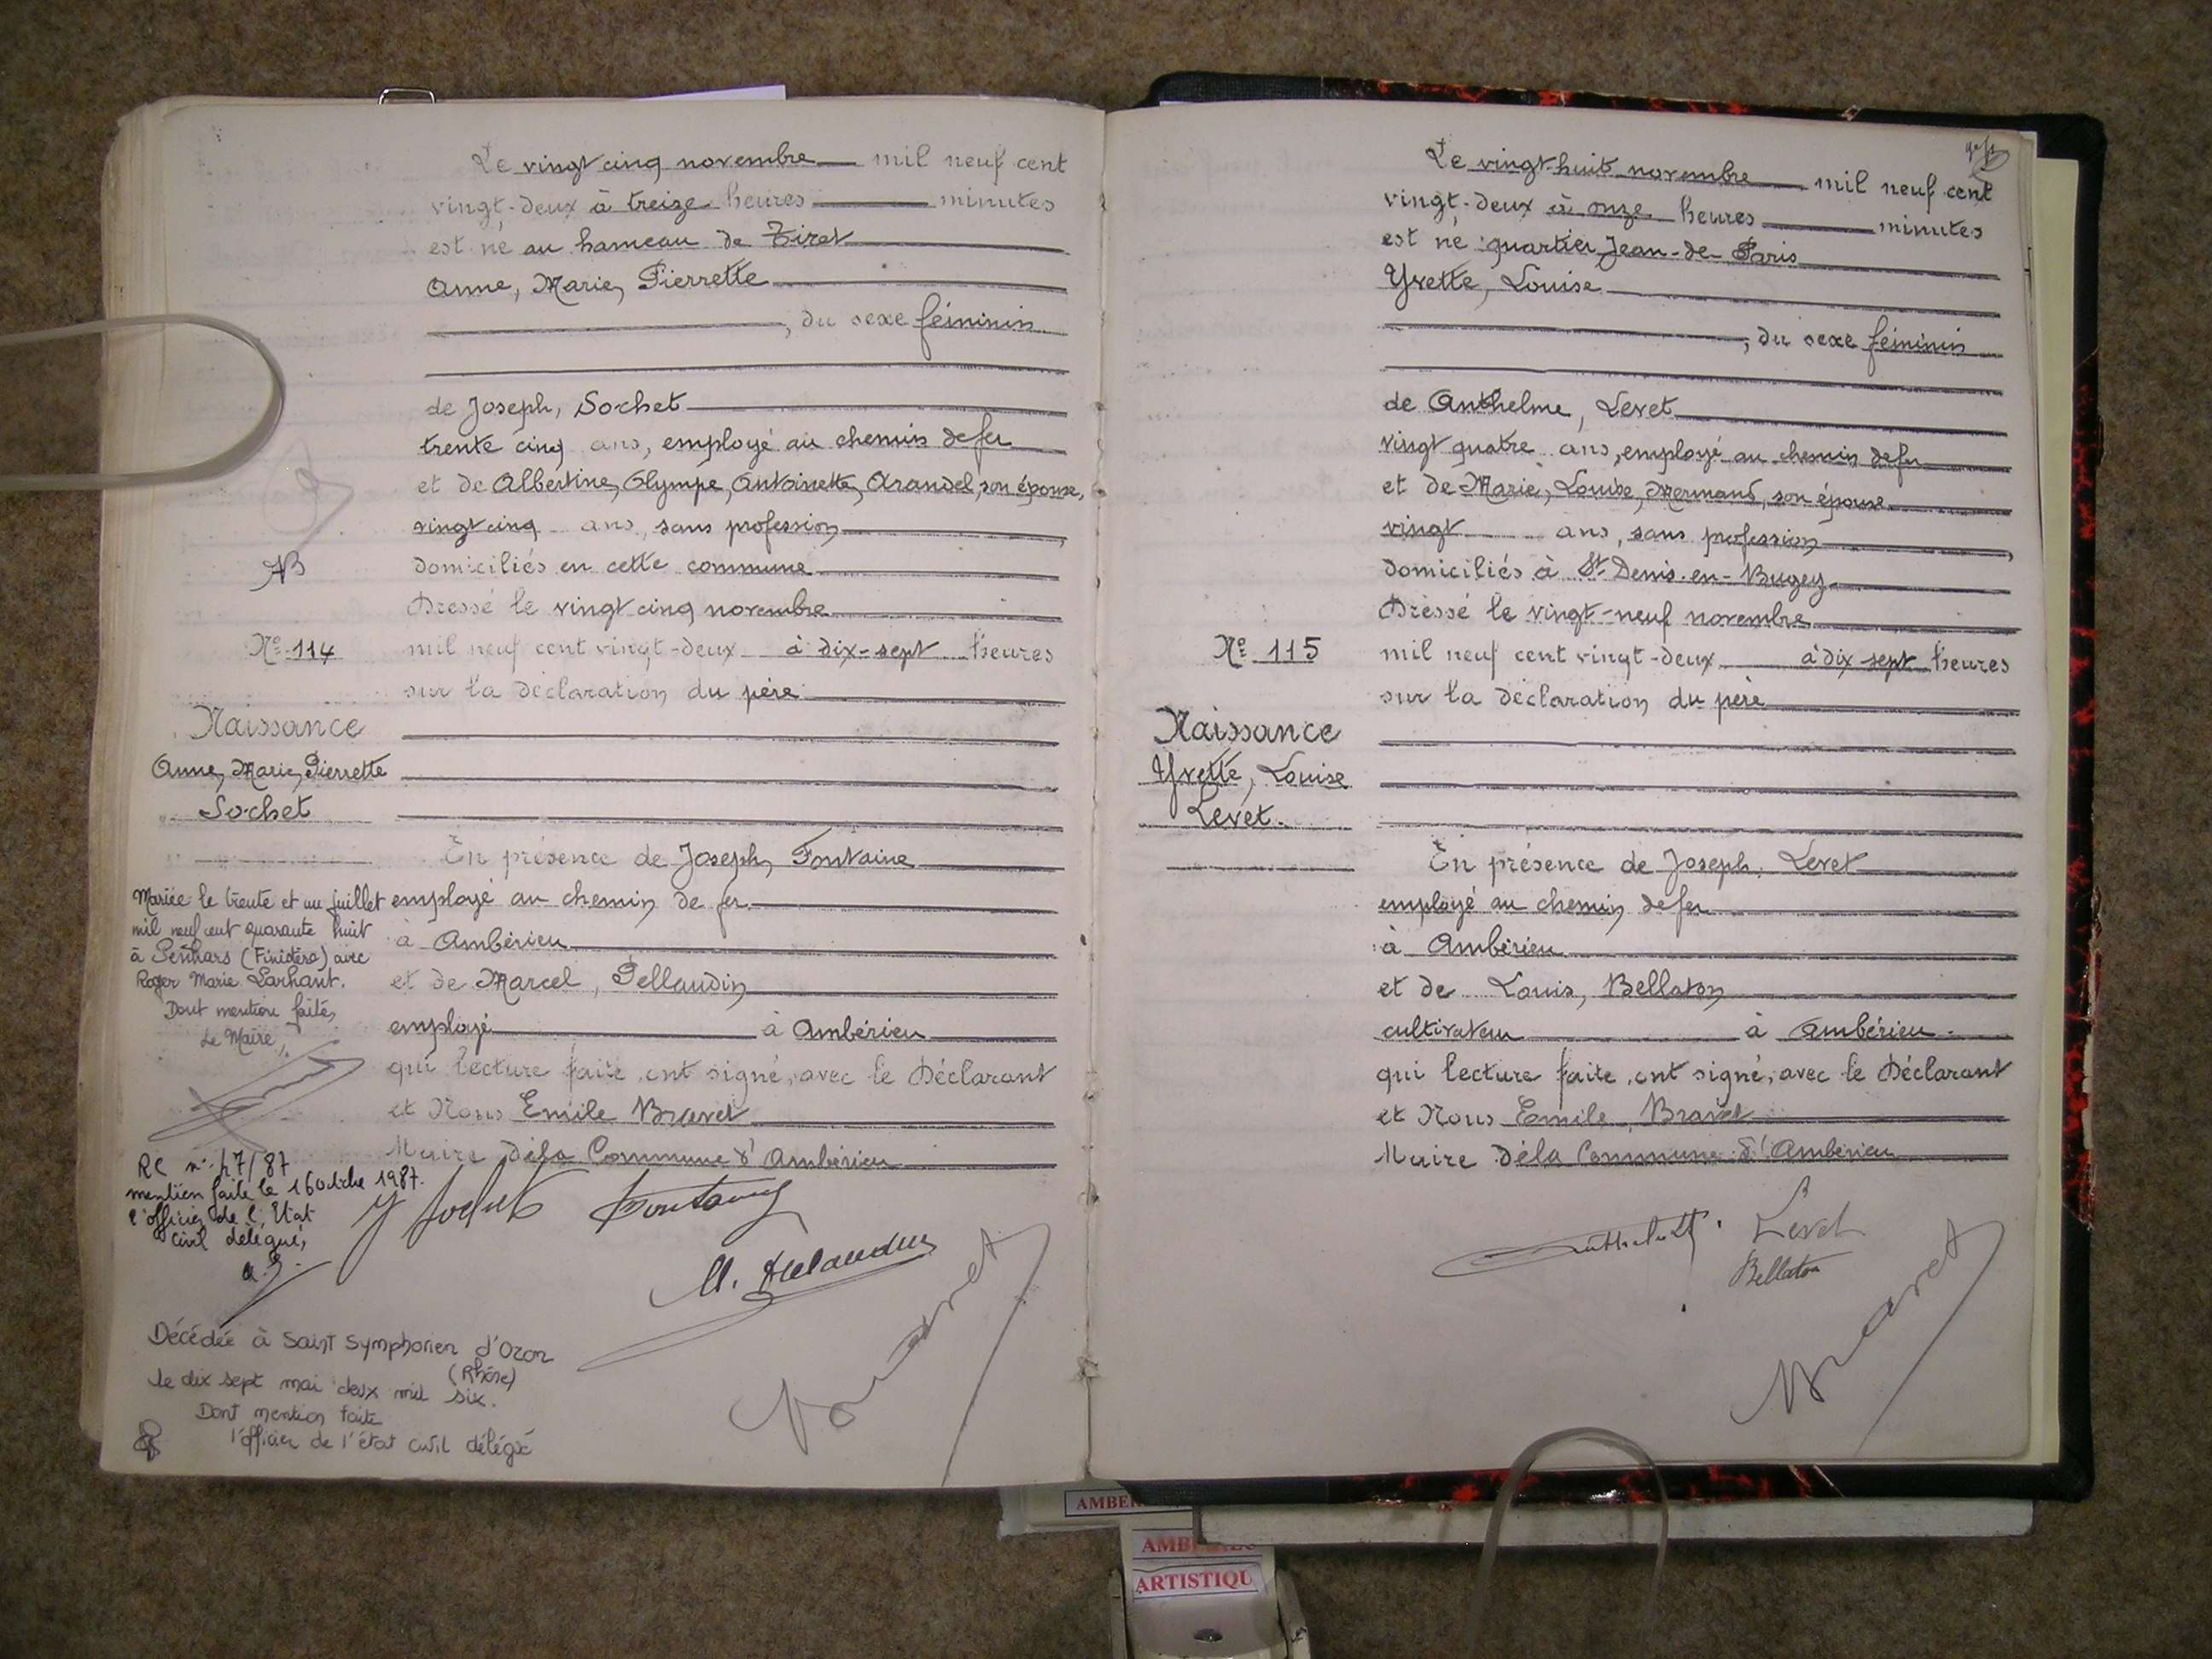 Le vingt cinq novembre mil neuf cent
vingt-deux à treize heures minutes
est né au hameau de Tiret
Anne, Marie, Pierrette
, du sexe féminin
de Joseph, Sochet
trente cinq ans, employé au chemin de fer
et de Albertine, Olympe, Antoinette, Arandel, son épouse,
vingt cinq ans, sans profession
domiciliés en cette commune
Dressé le vingt cinq novembre
mil neuf cent vingt-deux à dix-sept heures
sur la déclaration du père
En présence de Joseph, Fontaine
employé au chemin de fer
à Ambérieu
et de Marcel, Pellaudin
employé à Ambérieu
qui lecture faite, ont signé, avec le Déclarant
et Nous Emile Bravet
Maire de la Commune d'Ambérieu
No 114
Naissance
Anne, Marie, Pierrette
Sochet
Mariée le trente et un juillet
mil neuf cent quarante huit
à Penhars (Finistère) avec
Roger Marie Larhant.
Dont mention faite,
Le Maire,
RC n° 47/87
mention faite le 16 octobre 1987.
l'officier de l'Etat
civil délégué,
Décédée à Saint Symphorien d'Ozon
(Rhône)
le dix sept mai deux mil six.
Dont mention faite
l'officier de l'état civil délégué
J Sochet Fontaine
M. Pellaudin
Bravet
Le vingt-huit novembre mil neuf cent
vingt-deux à onze heures minutes
est né quartier Jean-de-Paris
Yvette, Louise
, du sexe féminin
de Anthelme, Levet
vingt quatre ans, employé au chemin de fer
et de Marie, Louise, Mermand, son épouse
vingt ans, sans profession
domiciliés à St Denis-en-Bugey
Dressé le vingt-neuf novembre
mil neuf cent vingt-deux à dix sept heures
sur la déclaration du père
En présence de Joseph, Levet
employé au chemin de fer
à Ambérieu
et de Louis, Bellaton
cultivateur à Ambérieu
qui lecture faite, ont signé, avec le Déclarant
et Nous Emile, Bravet
Maire de la Commune d'Ambérieu
No 115
Naissance
Yvette, Louise
Levet.
Levet
Bellaton
Bravet
ARTISTIQU